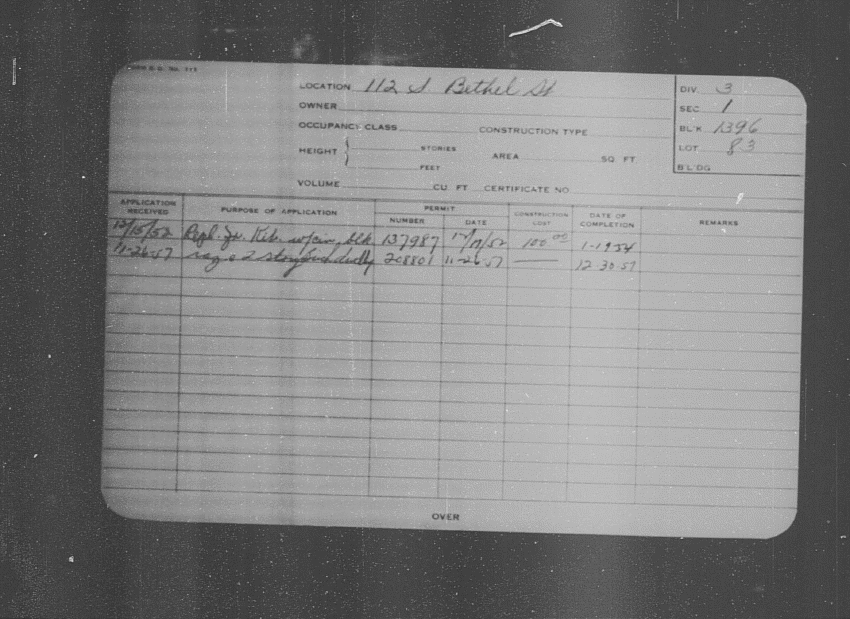 LOCATION 112 S. Bethel St
DIV. 3
OWNER
SEC. 1
OCCUPANCY CLASS CONSTRUCTION TYPE
BL'K 1396
HEIGHT STORIES FEET AREA SQ. FT.
LOT 83
BLDG
VOLUME CU. FT. CERTIFICATE NO.
APPLICATION RECEIVED PURPOSE OF APPLICATION PERMIT NUMBER DATE CONSTRUCTION COST DATE OF COMPLETION REMARKS
12/15/52 Repl. Fr. Kit. w/cin. blk 137987 12/17/52 100.00 1-1954
11-26-57 raz a 2 story dwellg 208801 11-26-57 — 12-30-57
OVER